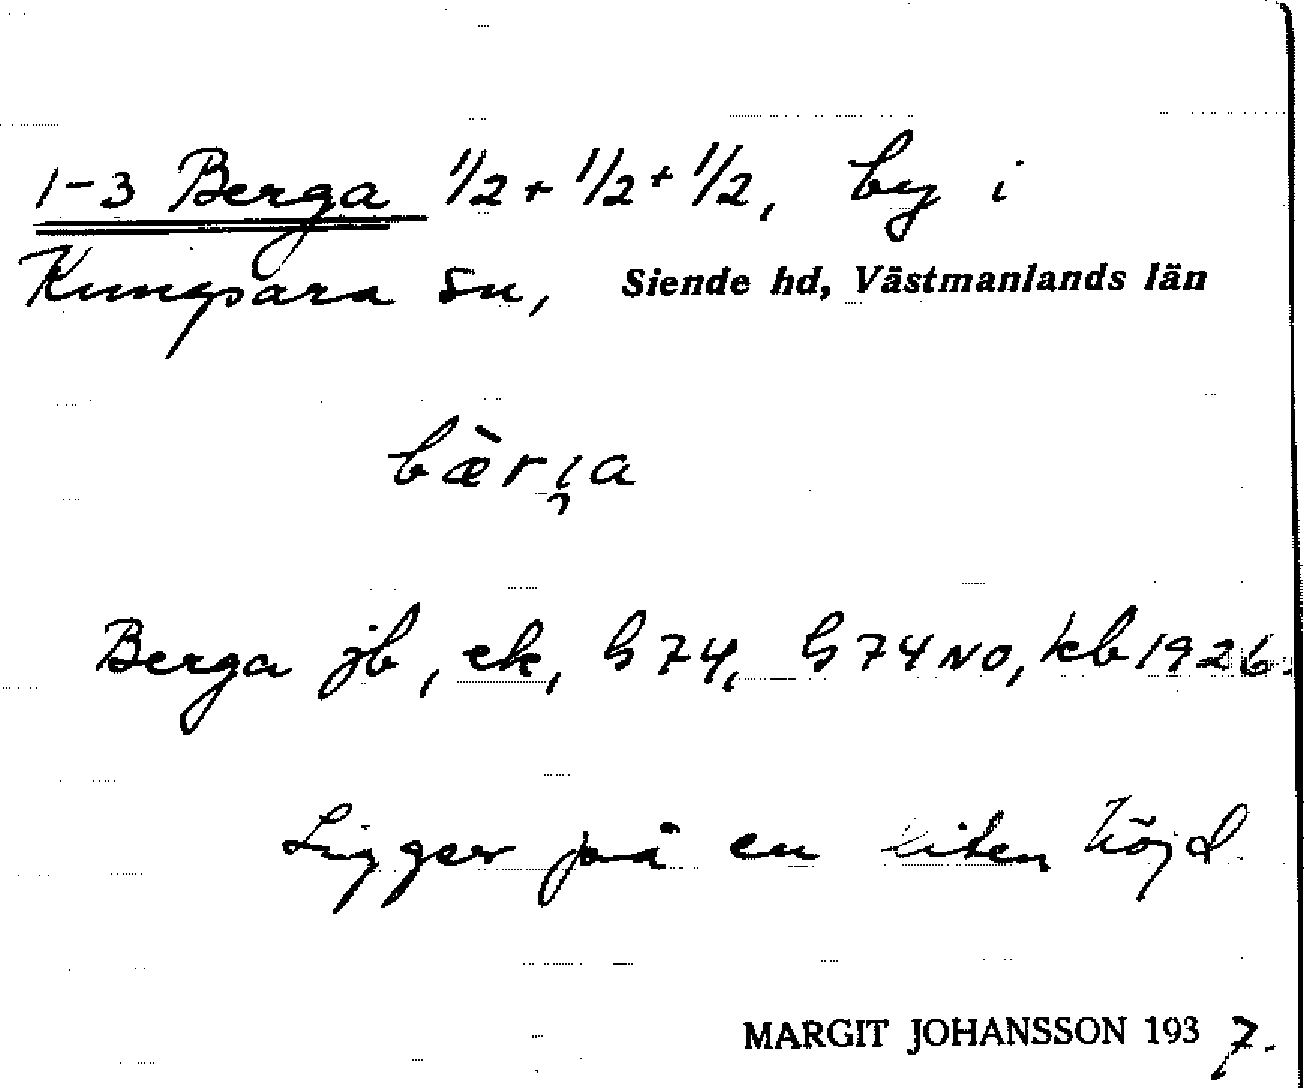 1-3 Berga 1/2 + 1/2 + 1/2, by i
Kungsara sn, Siende hd, Västmanlands län
bær̀i̯a
Berga jb, ek, G 74, G 74 NO, kb 1926.
Ligger på en liten höjd
MARGIT JOHANSSON 1937.